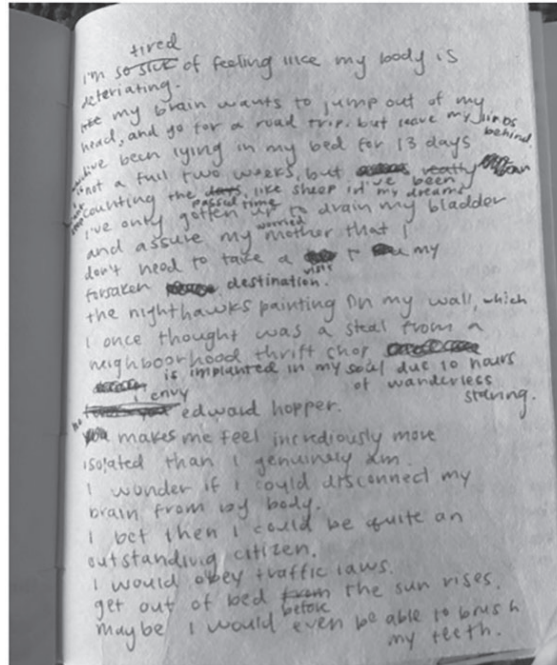 tired
I'm so sick of feeling like my body is
deteriating.
my brain wants to jump out of my
head, and go for a road trip. but leave my limbs
behind
I've been lying in my bed for 13 days
not a full two weeks, but really
I've been
counting the days, like sheep in my dreams
passed time
I've only gotten up to drain my bladder
and assure my worried mother that I
don't need to take a to my
visit
forsaken destination.
the nighthawks painting on my wall, which
I once thought was a steal from a
neighboorhood thrift shop
is implanted in my soul due to hours
of wanderless
staring.
I envy
edward hopper.
he
you makes me feel incrediously more
isolated than I genuinely am.
I wonder if I could disconnect my
brain from my body.
I bet then I could be quite an
outstanding citizen.
I would obey traffic laws.
get out of bed from the sun rises.
before
maybe I would even be able to brush
my teeth.